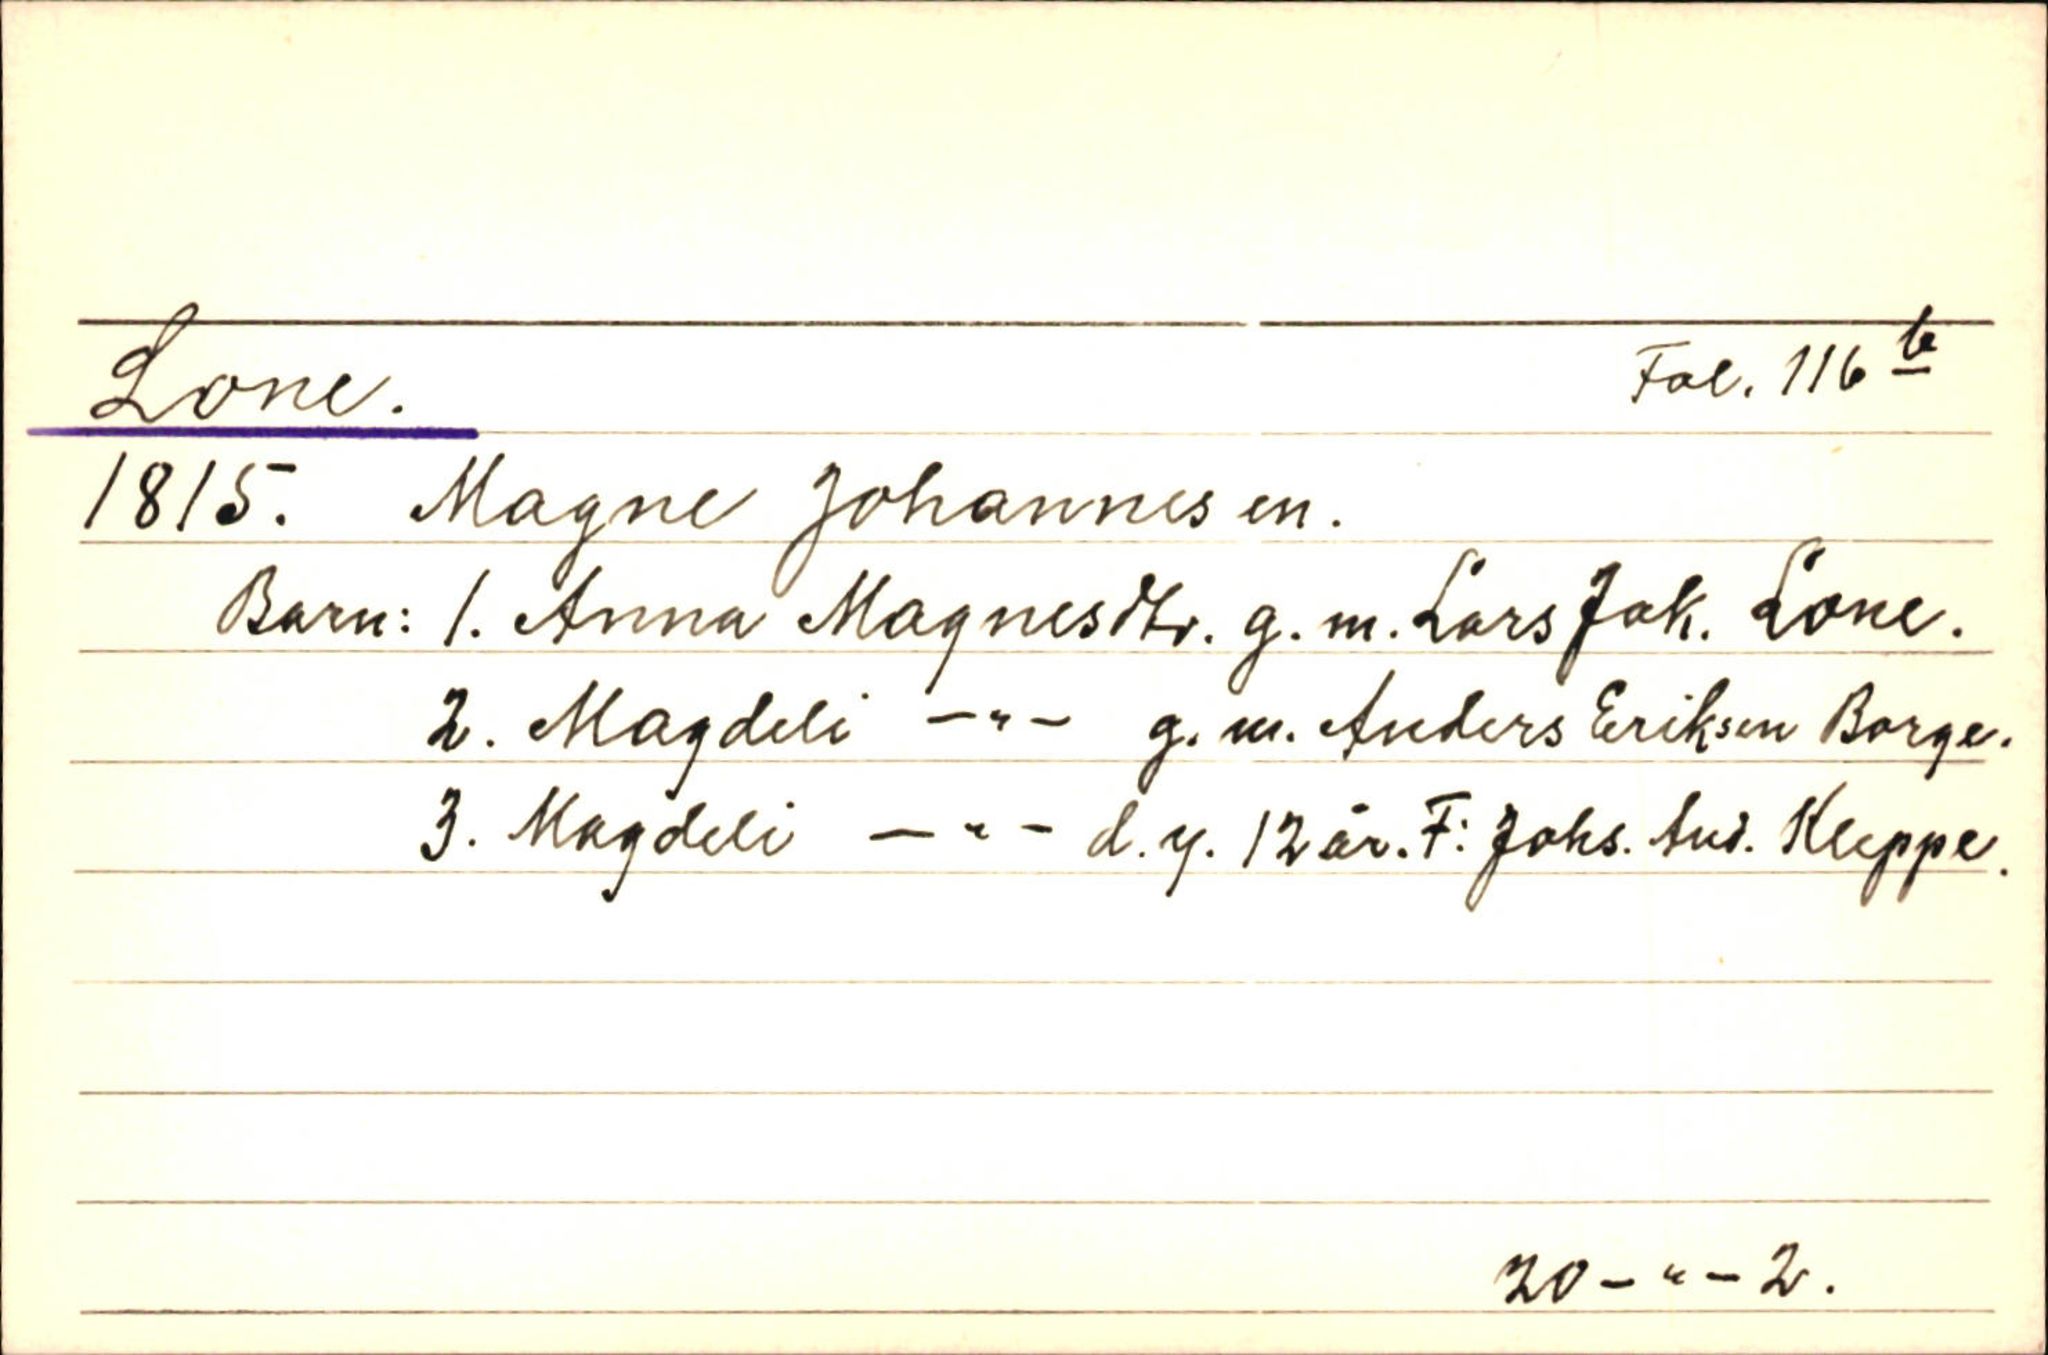 Lone. Fol. 116 b
1815. Magne Johannesen.
Barn: 1. Anna Magnesdtr. g. m. Lars Jak. Lone.
2. Magdeli —„— g. m. Anders Eriksen Borge.
3. Magdeli —„— d. y. 12 år. F: Johs. And. Kleppe.
20 —„— 2.